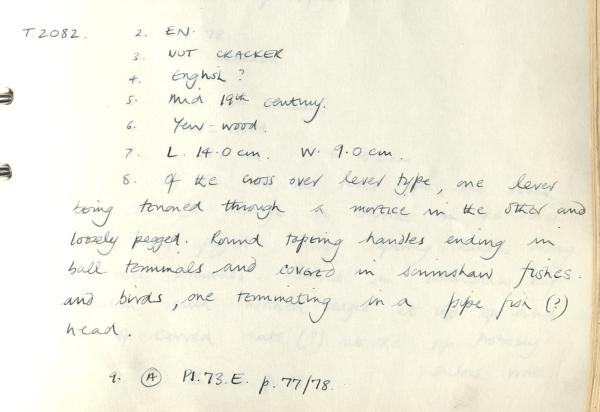 T.2082. 2. EN.
3. NUT CRACKER
4. English?
5. Mid 19th century.
6. Yew-wood.
7. L. 14.0cm. W. 9.0cm.
8. Of the cross over lever type, one lever
being tenoned through a mortice in the other and
loosely pegged. Round tapting handles ending in
ball terminals and covered in scrimshaw fishes.
and birds, one terminating in a pipe fish (?)
head.
9. A Pl.73.E. p.77/78.